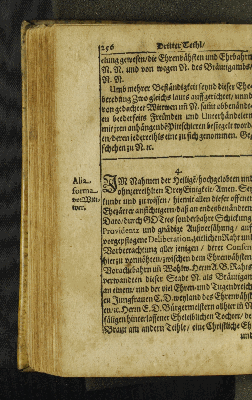 256 Dritter Theil/
elung gewesen/ die Ehrnvesten und Ehrbahrn
N. N. und von wegen N. des Bräutgambs/
N. N.
Umb mehrer Beständigkeit seynd dieser Ehe-
beredung Zwo gleichs lauts auffgerichtet/ unnd
von gedachter Wittwen N. samt obbenandten
en beederseits Freunden und Unterhändlern
mit ihren anhängenden Pitschiern besiegelt worden/
en/ deren jeder theils eine zu sich genommen. Ge-
schehen zu N. ꝛc.
4.
Alia
forma
vor Wit-
wer.
IM Nahmen der Heilig/ hochgelobten und
ohnzertheilten Drey Einigkeit/ Amen. Sey
kundt und zu wissen/ hiemit allen dieser offenen
Dato/ durch GOttes sonderbahre Schickung
Providentz und gnädige Außversehung/ auff
vorgepflogene Deliberation, zeitlichen Raht und
Vorbetrachtung aller jenigen/ derer Consens
hierzu vernöhten/ zwischen dem Ehrnvesten
Vorachtbahrn uñ Wolw. Herrn A. B. Rahts-
verwandten dieser Stadt N. als Bräutigam
an einem/ und der viel Ehren- und Tugendreich-
en Jungfrauen C. D. weyland des Ehrnvesten
ꝛc. Herrn E. D. Bürgermeistern allhier in
seligen hinterlassener Eheleiblichen Tochter/ der
Braut am andern Theile/ eine Christliche Eh-
und